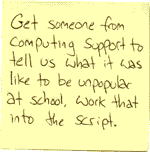 Get someone from
Computing Support to
tell us what it was
like to be unpopular
at school, work that
into the script.